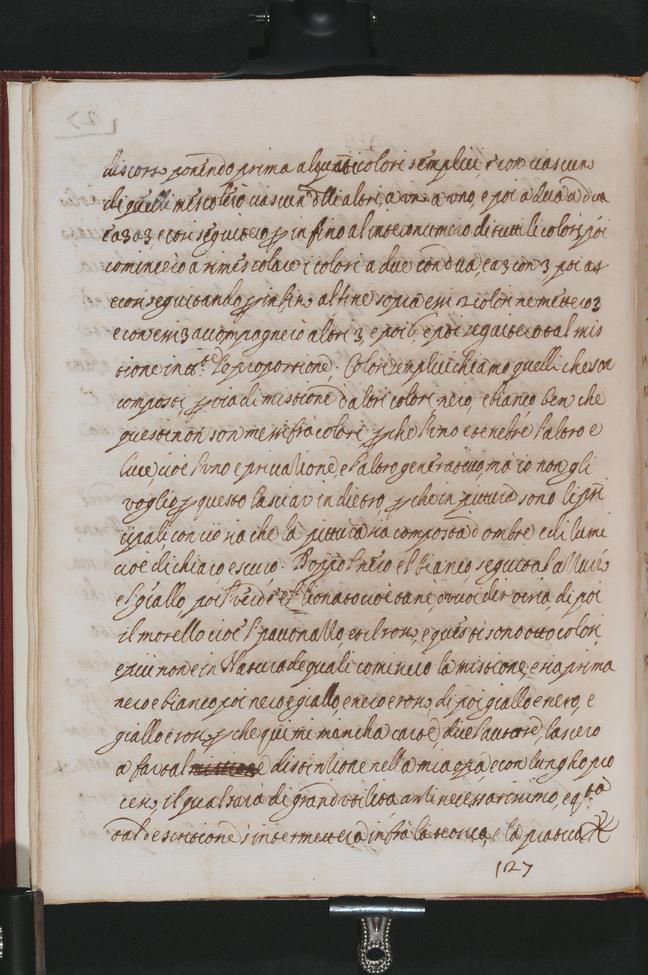 discorso ponendo prima alquanti colori semplici e con ciascuno
di quelli mescolerò ciascun delli altri a uno a uno, e poi a dua a dua
e a 3 a 3, e così seguiterò p in fino al intero numero di tutti li colori, poi
comincierò a rimescolare i colori a due con dua, e a 3 con 3, poi a 4
e così seguitando p in fine al fine sopra essi 2 colori ne metterò 3
e con essi 3 accompagnerò altri 3, e poi 6, e poi seguiterò tal mis
tione in tte le proportione. Colori semplici chiamo quelli che son
composti, p via di mistione d altri colori nero, e bianco ben che
questi non son messi fra colori p che l'uno e tenebre l'altro e
luce, cioè l'uno e privatione, e l'altro generativo, ma io non gli
voglio p questo lasciar in dietro, p che in pittura sono li pri
cipali, con cio sia che la pittura sia composta d ombre e di lumi
cioè di chiaro e scuro. Doppo l nero el bianco seguita l'azzurro
e l giallo, poi l verde e l lionato cioè tanè, o vuoi dir ocria, di poi
il morello cioè l pavonazzo et il rosso, e questi sono otto colori,
e più non è in Natura de quali comincio la mistione, e sia prima
nero e bianco, poi nero e giallo, e nero e rosso, di poi giallo e nero, e
giallo e rosso, p che qui mi mancha carta, dice l'autore, lascerò
a far tal distintione nella mia opra con lungho pro
cesso, il qual sarà di grand utilità anzi necessarissimo, e qsta
tal descritione s intermetterà infra la teorica, e la pratica
127